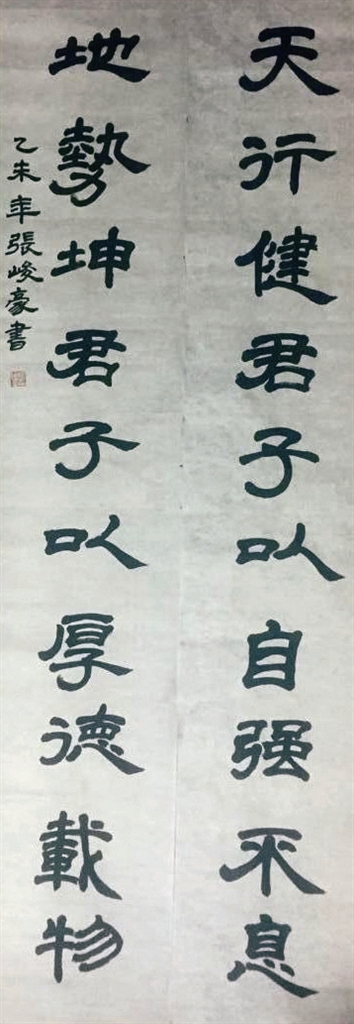 天行健君子以自强不息
地勢坤君子以厚德載物
乙未年張峻豪書